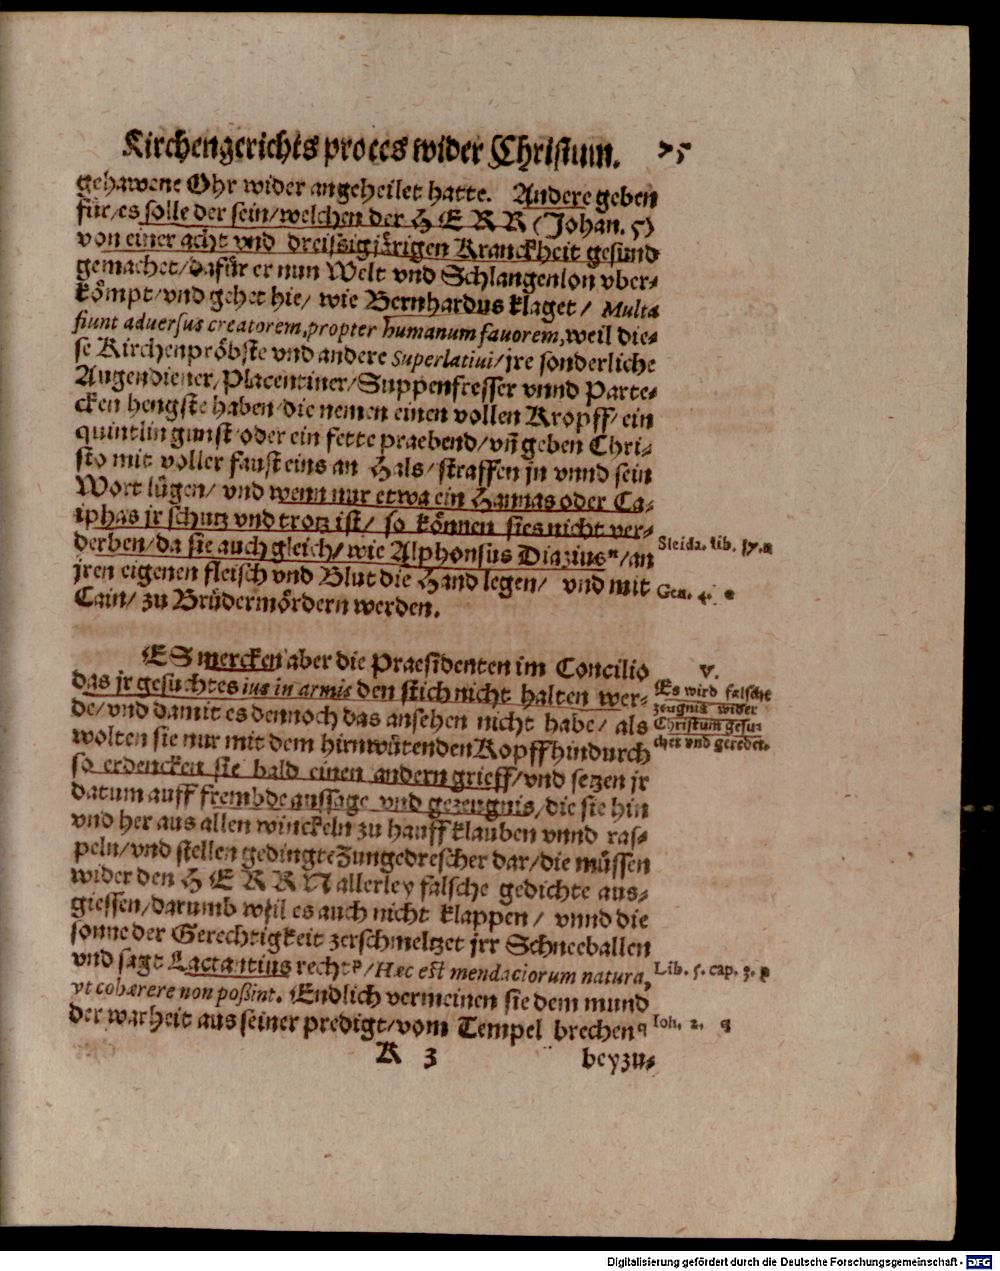 Kirchengerichts proces wider Christum. 75
gehawene Ohr wider angeheilet hatte. Andere geben
für/es solle der sein/welchen der HERR (Johan. 5)
von einer acht vnd dreissigjärigen Kranckheit gesund
gemachet/dafür er nun Welt vnd Schlangenlon vber-
kömpt/vnd gehet hie/ wie Bernhardus klaget/ Multa
fiunt aduersus creatorem, propter humanum fauorem, weil die-
se Kirchenpröbste vnd andere Superlatiui/jre sonderliche
Augendiener/Placentiner/Suppenfresser vnnd Parte-
cken hengste haben/die nemen einen vollen Kropff/ein
quintlin gunst oder ein fette praebend/vñ geben Chri-
sto mit voller faust eins an Hals/straffen jn vnnd sein
Wort lügen/ vnd wenn nur etwa ein Hannas oder Ca-
iphas jr schutz vnd trotz ist/ so können sies nicht ver-
derben/da sie auch gleich/wie Alphonsus Diazius n/an
jren eigenen fleisch vnd Blut die Hand legen/ vnd mit
Cain/ zu Brüdermördern werden.
Sleida. lib. 17. n
Gen. 4. o
ES mercken aber die Praesidenten im Concilio
das jr gesuchtes ius in armis den stich nicht halten wer-
de/vnd damit es dennoch das ansehen nicht habe/ als
wolten sie nur mit dem hirnwütenden Kopff hindurch
so erdencken sie bald einen andern grieff/vnd setzen jr
datum auff frembde aussage vnd gezeugnis/die sie hin
vnd her aus allen winckeln zu hauff klauben vnnd ras-
peln/vnd stellen gedingte Zungedrescher dar/die müssen
wider den HERRN allerley falsche gedichte aus-
giessen/darumb weil es auch nicht klappen/ vnnd die
sonne der Gerechtigkeit zerschmeltzet jrr Schneeballen
vnd sagt Lactantius recht p/Hæc est mendaciorum natura,
vt cohærere non poßint. Endlich vermeinen sie dem mund
der warheit aus seiner predigt/vom Tempel brechen q
V.
Es wird falsche
zeugnis wider
Christum gesu-
chet vnd geredet.
Lib. 5. cap. 3. p
Ioh. 2. q
K 3 beyzu-
Digitalisierung gefördert durch die Deutsche Forschungsgemeinschaft - DFG